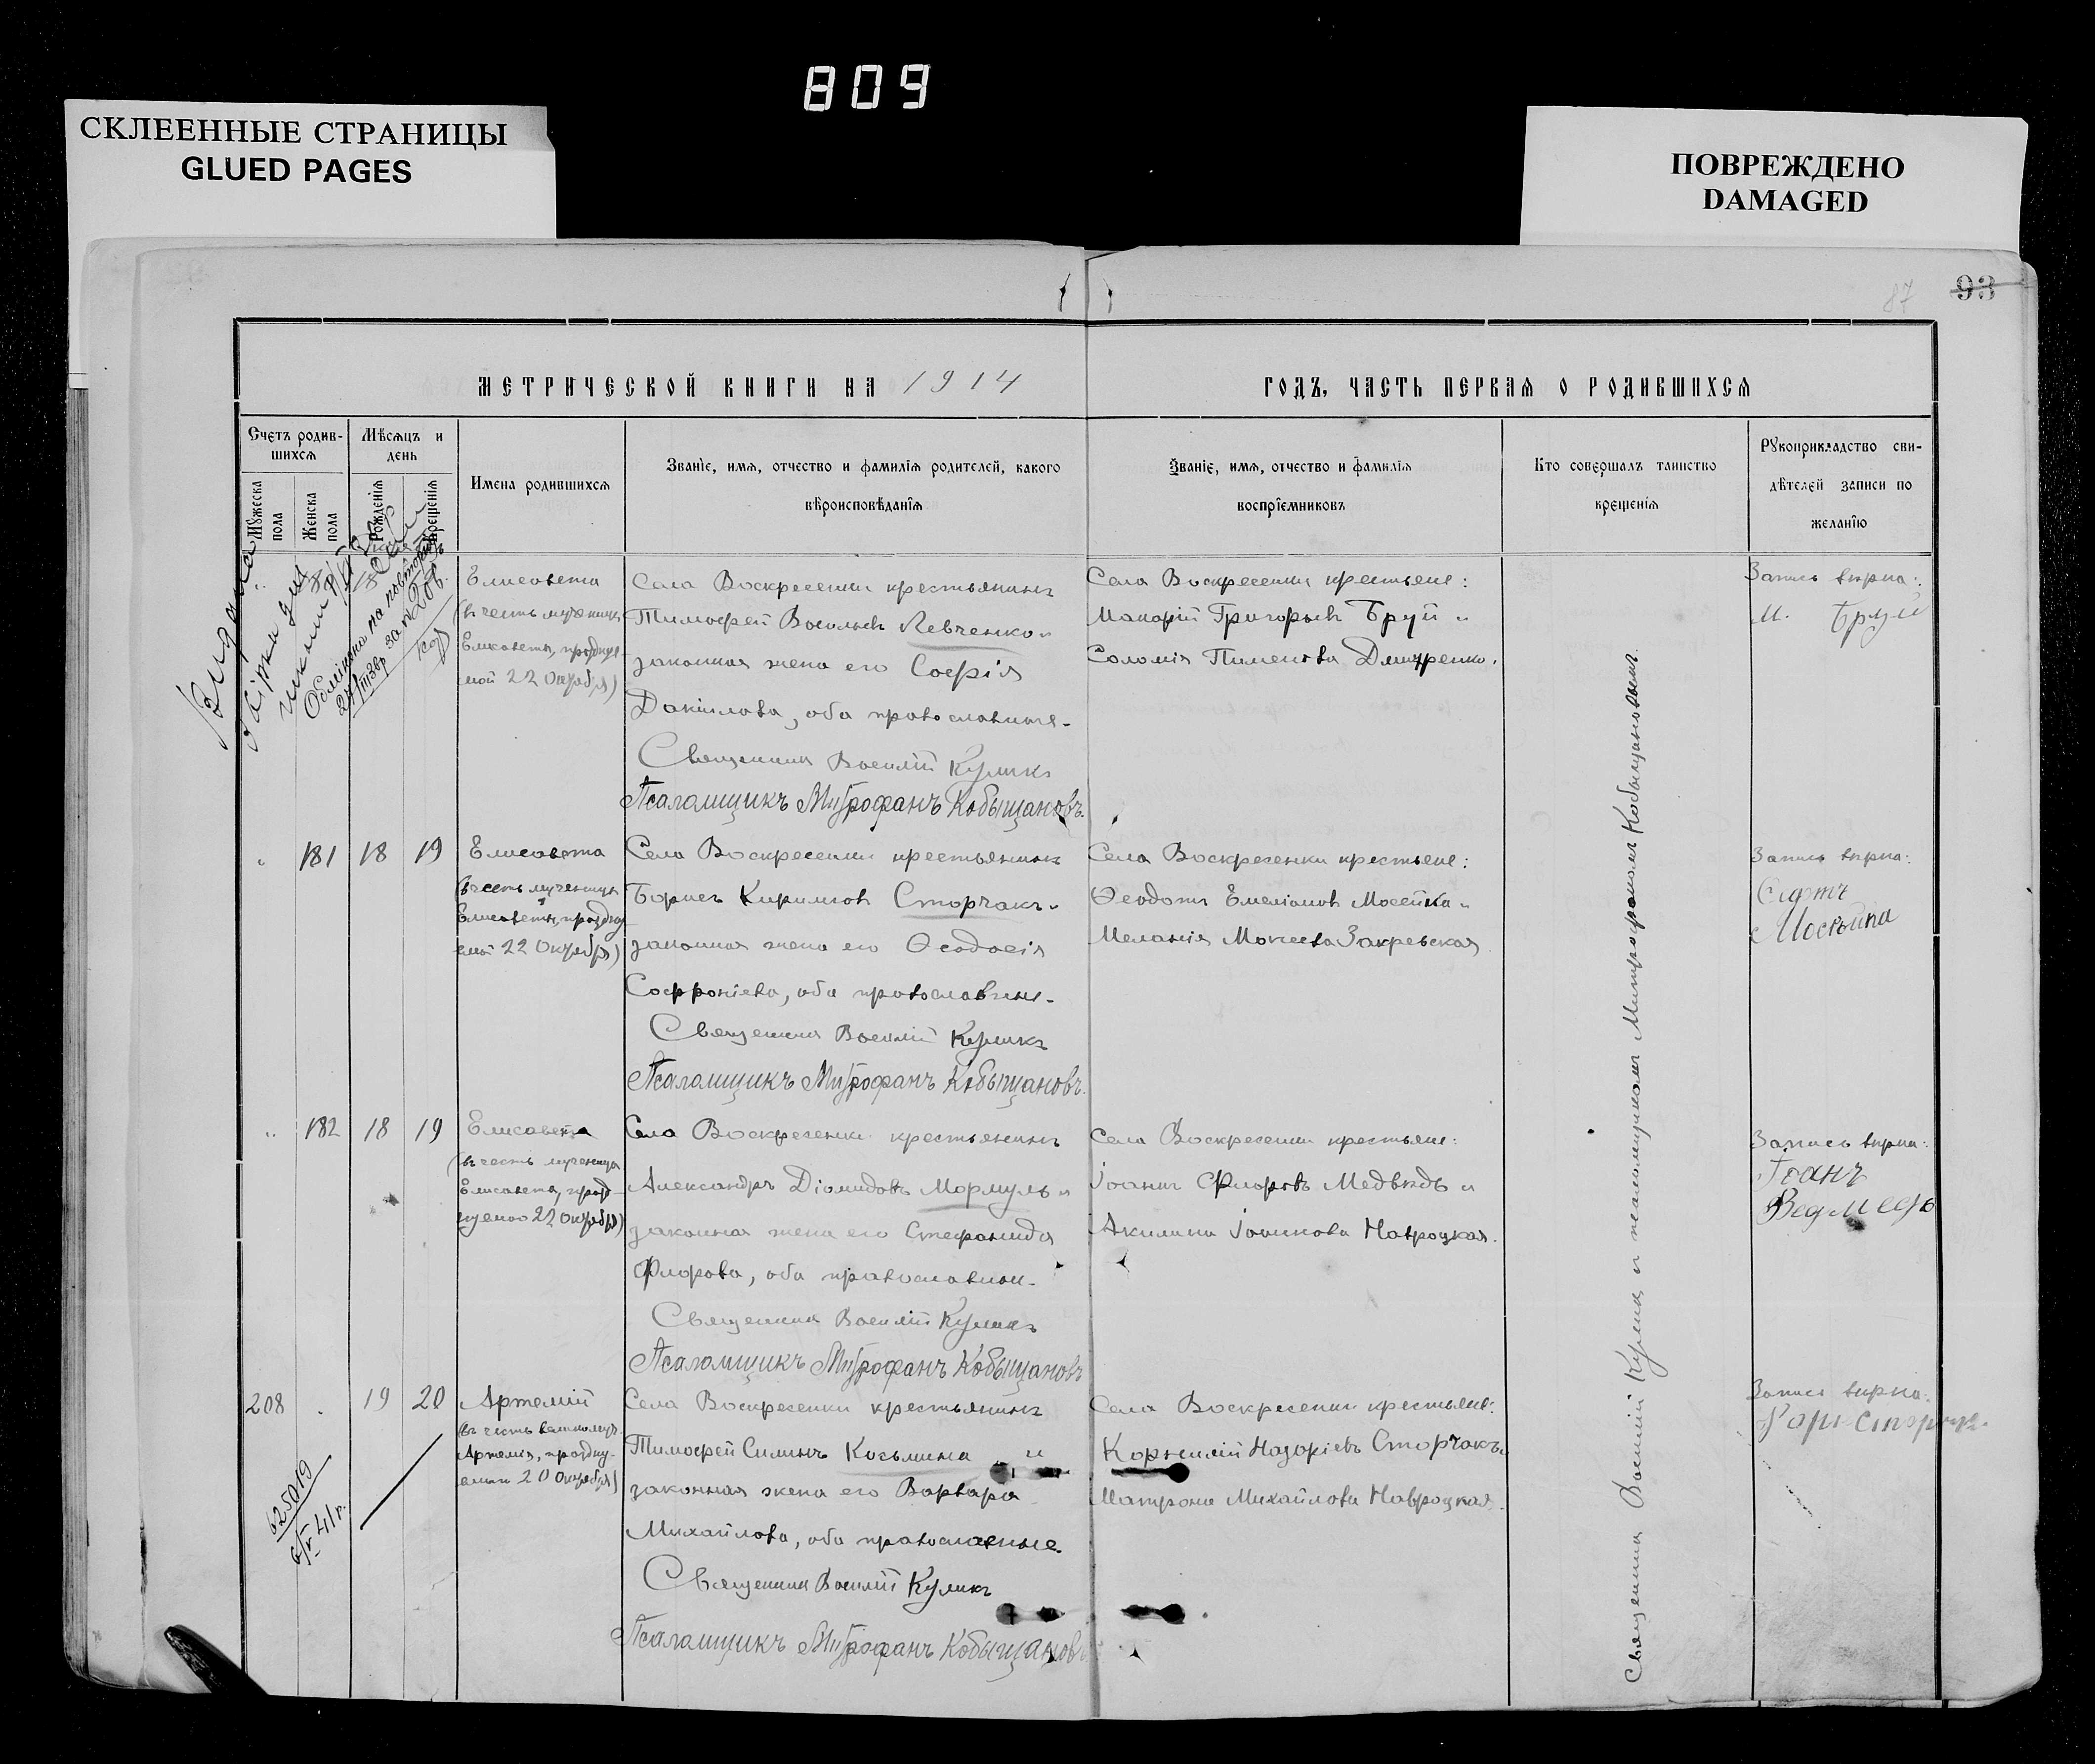 809
СКЛЕЕННЫЕ СТРАНИЦЫ
GLUED PAGES
ПОВРЕЖДЕНО
DAMAGED
87 93
МЕТРИЧЕСКОЙ КНИГИ НА 1914
ГОДЪ, ЧАСТЬ ПЕРВАЯ О РОДИВШИХСЯ
Счетъ родив-
шихся
Мѣсяцъ и
день
Мужеска пола
Женска пола
Рожденія
Крещенія
Имена родившихся
Званіе, имя, отчество и фамилія родителей, какого
вѣроисповѣданія
Званіе, имя, отчество и фамилія
воспріемниковъ
Кто совершалъ таинство
крещенія
Рукоприкладство сви-
дѣтелей записи по
желанію
Елисавета
(въ честь мученицы
Елисаветы, празднуе-
мой 22 Октября)
Села Воскресенки крестьянинъ
Тимофей Васильевъ Левченко и
законная жена его Софія
Даніилова, оба православные.
Священникъ Василій Куликъ
Псаломщикъ Митрофанъ Кобыщановъ.
Села Воскресенки крестьяне:
Макарій Григорьевъ Бруй и
Соломія Пименова Дмитренко.
Запись вѣрна:
М. Бруй
181 18 19
Елисавета
(въ честь мученицы
Елисаветы, праздну
емой 22 Октября)
Села Воскресенки крестьянинъ
Борисъ Кириловъ Сторчакъ и
законная жена его Ѳеодосія
Софроніева, оба православные.
Священникъ Василій Куликъ
Псаломщикъ Митрофанъ Кобыщановъ.
Села Воскресенки крестьяне:
Ѳеодотъ Емеліановъ Мосейка и
Меланія Мокеева Закревская
Запись вѣрна:
182 18 19
Елисавета
(въ честь мученицы
Елисаветы, празд-
нуемой 22 октября)
Села Воскресенки крестьянинъ
Александръ Діомидовъ Мормуль и
законная жена его Стефанида
Флорова, оба православные.
Священникъ Василій Куликъ
Псаломщикъ Митрофанъ Кобыщановъ
Села Воскресенки крестьяне:
Іоаннъ Флоровъ Медвѣдь и
Акилина Іоаннова Навроцкая.
Запись вѣрна:
Іоанъ
Ведмедь
208 19 20
Артемій
(въ честь великомуч.
Артемія, праздну-
емаго 20 Октября)
Села Воскресенки крестьянинъ
Тимофей Силинъ Козьмина и
законная жена его Варвара
Михайлова, оба православные.
Священникъ Василій Куликъ
Псаломщикъ Митрофанъ Кобыщановъ
Села Воскресенки крестьяне:
Корнилій Назаріевъ Сторчакъ и
Матрона Михайлова Навроцкая.
Запись вѣрна:
Священникъ Василій Куликъ и псаломщикомъ Митрофаномъ Кобыщановымъ